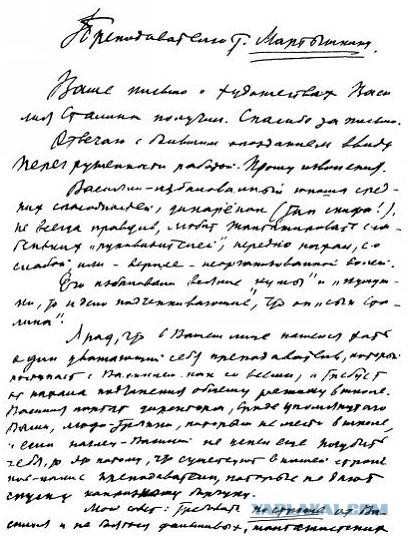 Преподавателю т. Мартышину.
Ваше письмо о художествах Васи-
лия Сталина получил. Спасибо за письмо.
Отвечаю с большим опозданием ввиду
перегруженности работой. Прошу извинения.
Василий – избалованный юноша сред-
них способностей, дикарёнок (тип скифа!),
не всегда правдив, любит шантажировать сла-
беньких "руководителей", нередко нахал, со
слабой или – вернее – неорганизованной волей.
Его избаловали всякие "кумы" и "кумуш-
ки", то и дело подчеркивающие, что он "сын Ста-
лина".
Я рад, что в Вашем лице нашелся хоть
один уважающий себя преподаватель, который
поступает с Василием, как со всеми, и требует
от нахала подчинения общему режиму в школе.
Василия портят директора, вроде упомянутого
Вами, люди-тряпки, которым не место в школе,
и если наглец-Василий не успел еще погубить
себя, то это потому, что существуют в нашей стране
кое-какие преподаватели, которые не дают
спуску капризному барчуку.
Мой совет: требовать построже от Ва-
силия и не бояться фальшивых, шантажистских
YAPLAKAL.COM